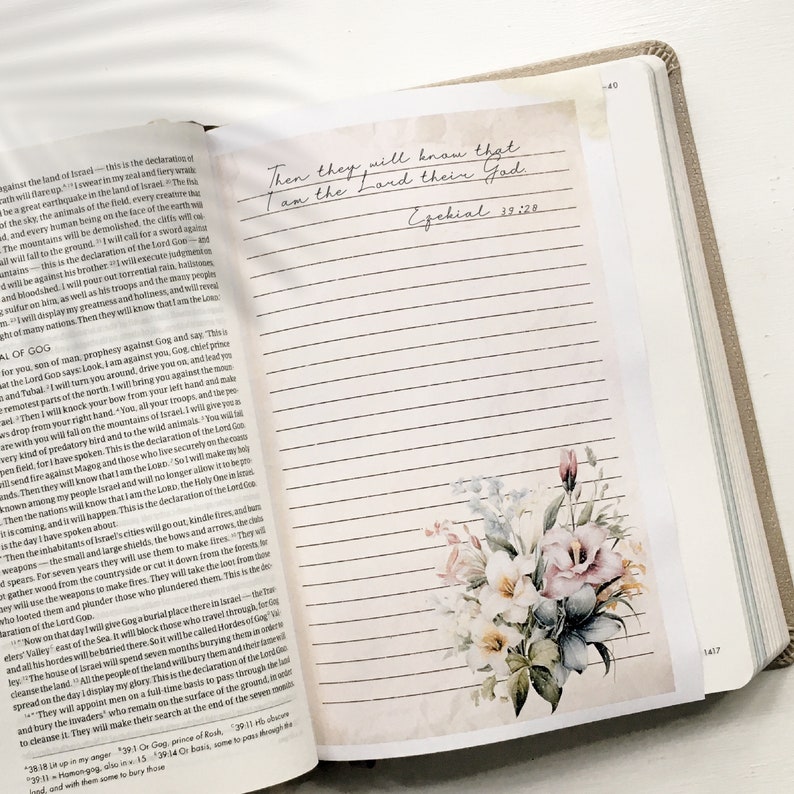 against the land of Israel — this is the declaration of
rath will flare up.ᴬ,¹⁹ I swear in my zeal and fiery wrath:
l be a great earthquake in the land of Israel. ²⁰ The fish
of the sky, the animals of the field, every creature that
d, and every human being on the face of the earth will
The mountains will be demolished, the cliffs will col-
all will fall to the ground. ²¹ I will call for a sword against
untains — this is the declaration of the Lord GOD — and
rd will be against his brother. ²² I will execute judgment on
and bloodshed. I will pour out torrential rain, hailstones,
g sulfur on him, as well as his troops and the many peoples
m. ²³ I will display my greatness and holiness, and will reveal
ght of many nations. Then they will know that I am the LORD.'
AL OF GOG
for you, son of man, prophesy against Gog and say, 'This is
at the Lord GOD says: Look, I am against you, Gog, chief prince
and Tubal. ² I will turn you around, drive you on, and lead you
e remotest parts of the north. I will bring you against the moun-
rael. ³ Then I will knock your bow from your left hand and make
ws drop from your right hand. ⁴ You, all your troops, and the peo-
are with you will fall on the mountains of Israel. I will give you as
every kind of predatory bird and to the wild animals. ⁵ You will fall
pen field, for I have spoken. This is the declaration of the Lord GOD.
will send fire against Magog and those who live securely on the coasts
ands. Then they will know that I am the LORD. ⁷ So I will make my holy
known among my people Israel and will no longer allow it to be pro-
Then the nations will know that I am the LORD, the Holy One in Israel.
it is coming, and it will happen. This is the declaration of the Lord GOD.
is the day I have spoken about.
"'Then the inhabitants of Israel's cities will go out, kindle fires, and burn
weapons — the small and large shields, the bows and arrows, the clubs
d spears. For seven years they will use them to make fires. ¹⁰ They will
ot gather wood from the countryside or cut it down from the forests, for
hey will use the weapons to make fires. They will take the loot from those
who looted them and plunder those who plundered them. This is the dec-
laration of the Lord GOD.
¹¹ "'Now on that day I will give Gog a burial place there in Israel — the Trav-
elers' Valley east of the Sea. It will block those who travel through, for Gog
and all his hordes will be buried there. So it will be called Hordes of Gog Val-
ley. ¹² The house of Israel will spend seven months burying them in order to
cleanse the land. ¹³ All the people of the land will bury them and their fame will
spread on the day I display my glory. This is the declaration of the Lord GOD.
¹⁴ "'They will appoint men on a full-time basis to pass through the land
and bury the invadersᴱ who remain on the surface of the ground, in order
to cleanse it. They will make their search at the end of the seven months.
ᴬ38:18 Lit up in my anger ᴮ39:1 Or Gog, prince of Rosh, ᶜ39:11 Hb obscure
ᴰ39:11 = Hamon-gog, also in v. 15 ᴱ39:14 Or basis, some to pass through the
land, and with them some to bury those
-40
Then they will know that
I am the Lord their God.
Ezekial 39:28
1417